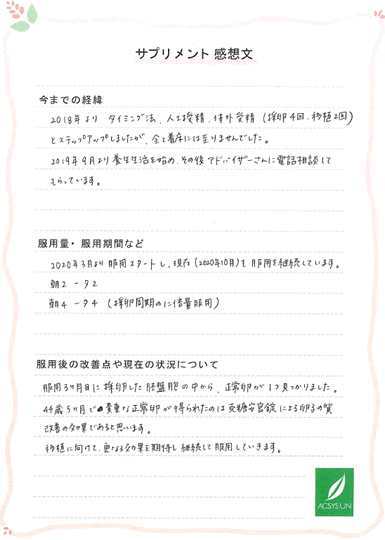 サプリメント 感想文
今までの経緯
2018年より タイミング法、人工授精、体外受精（採卵4回、移植2回）
とステップアップしましたが、全て着床には至りませんでした。
2019年9月より養生生活を始め、その後アドバイザーさんに電話相談して
もらっています。
服用量・服用期間など
2020年3月より服用スタートし、現在(2020年10月)も服用を継続しています。
朝2 - 夕2
朝4 - 夕4（採卵周期のみ倍量服用）
服用後の改善点や現在の状況について
服用3ヶ月目に採卵した胚盤胞の中から、正常卵が1つ見つかりました。
44歳5ヶ月で貴重な正常卵が得られたのは 糖 錠による卵子の質
改善の効果であると思います。
移植に向けて、更なる効果を期待し継続して服用していきます。
ACSYSUN